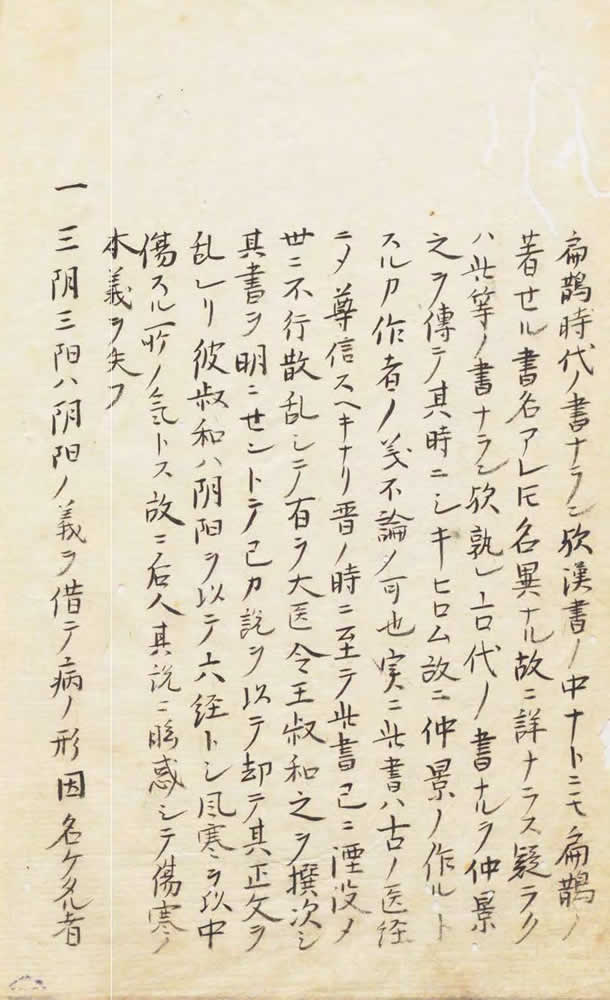 扁鵲時代ノ書ナラン欤漢書ノ中ナトニモ扁鵲ノ
著セル書名アレ𪜈名異ナル故ニ詳ナラス疑ラク
ハ此等ノ書ナラン欤孰レ古代ノ書ナルヲ仲景
之ヲ傳テ其時ニシキヒロム故ニ仲景ノ作ルト
スルカ作者ノ義不論〆可也実ニ此書ハ古ノ医経
ニ〆尊信スヘキナリ晋ノ時ニ至テ此書已ニ湮没〆
世ニ不行散乱シテ有ヲ大医令王叔和之ヲ撰次シ
其書ヲ明ニセントテ己カ説ヲ以テ却テ其正文ヲ
乱レリ彼叔和ハ阴阳ヲ以テ六経トシ風寒ヲ以中
傷スル所ノ氣トス故ニ后人其説ニ眩惑シテ傷寒ノ
本義ヲ失フ
一 三阴三阳ハ阴阳ノ義ヲ借テ病ノ形因名ケタル者